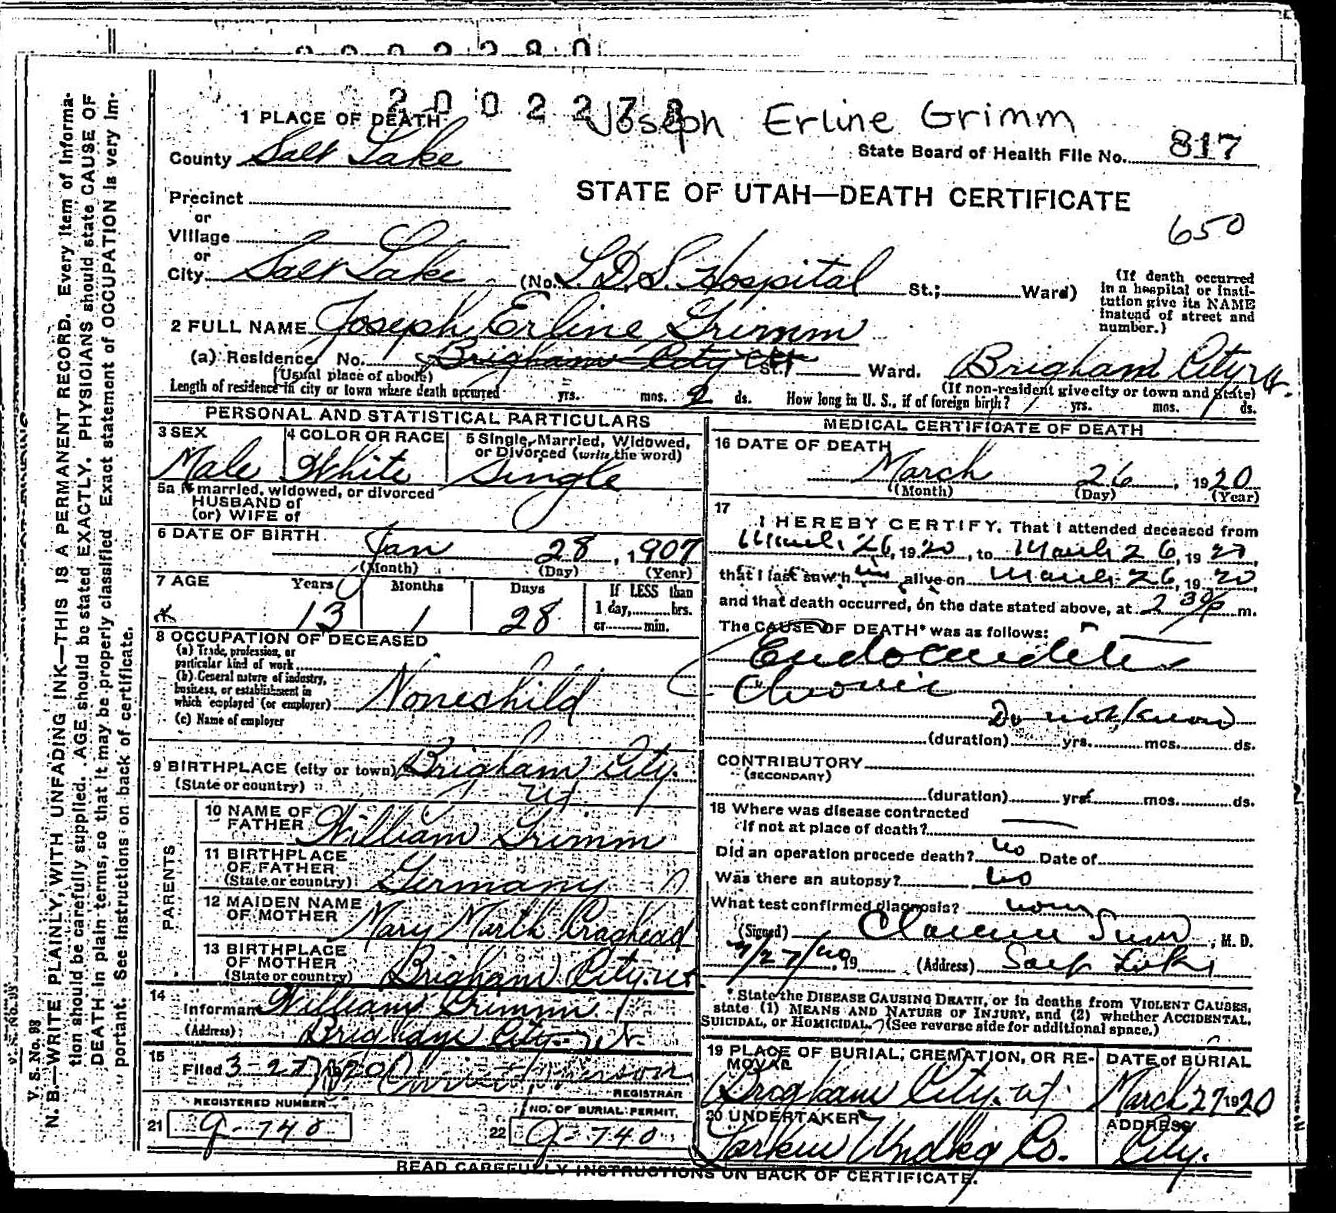 2002278
Joseph Erline Grimm
1 PLACE OF DEATH
County Salt Lake
State Board of Health File No. 817
STATE OF UTAH—DEATH CERTIFICATE
650
Precinct
or
Village
or
City Salt Lake (No. L.D.S. Hospital St.; Ward)
(If death occurred in a hospital or insti-
tution give its NAME
instead of street and
number.)
2 FULL NAME Joseph Erline Grimm
(a) Residence No. Brigham City St. Ward. Brigham City Ut.
(Usual place of abode) (If non-resident give city or town and State)
Length of residence in city or town where death occurred yrs. mos. 2 ds. How long in U. S., if of foreign birth? yrs. mos. ds.
PERSONAL AND STATISTICAL PARTICULARS
3 SEX Male
4 COLOR OR RACE White
5 Single, Married, Widowed,
or Divorced (write the word)
Single
5a If married, widowed, or divorced
HUSBAND of
(or) WIFE of
6 DATE OF BIRTH
Jan 28, 1907
(Month) (Day) (Year)
7 AGE Years Months Days If LESS than
1 day, hrs.
or min.
13 1 28
8 OCCUPATION OF DECEASED
(a) Trade, profession, or
particular kind of work
(b) General nature of industry,
business, or establishment in
which employed (or employer) None child
(c) Name of employer
9 BIRTHPLACE (city or town) Brigham City
(State or country) Ut
PARENTS
10 NAME OF
FATHER William Grimm
11 BIRTHPLACE
OF FATHER
(State or country) Germany
12 MAIDEN NAME
OF MOTHER Mary Marth Craghead
13 BIRTHPLACE
OF MOTHER
(State or country) Brigham City Ut
14
Informant William Grimm
(Address) Brigham City Ut.
15
Filed 3-27 1920
REGISTRAR
REGISTERED NUMBER
21 G-740
NO. OF BURIAL PERMIT
22 G-740
MEDICAL CERTIFICATE OF DEATH
16 DATE OF DEATH
March 26, 1920
(Month) (Day) (Year)
17
I HEREBY CERTIFY, That I attended deceased from
March 26, 1920, to March 26, 1920
that I last saw him alive on March 26, 1920
and that death occurred, on the date stated above, at 2 30 p m.
The CAUSE OF DEATH* was as follows:
Endocarditis
Chronic
Do not know
(duration) yrs. mos. ds.
CONTRIBUTORY
(SECONDARY)
(duration) yrs. mos. ds.
18 Where was disease contracted
if not at place of death?
Did an operation precede death? no Date of
Was there an autopsy? no
What test confirmed diagnosis? none
(Signed) Clarence, M. D.
3/27/20, 19 (Address) Salt Lake
*State the DISEASE CAUSING DEATH, or in deaths from VIOLENT CAUSES,
state (1) MEANS AND NATURE OF INJURY, and (2) whether ACCIDENTAL,
SUICIDAL, or HOMICIDAL. (See reverse side for additional space.)
19 PLACE OF BURIAL, CREMATION, OR RE-
MOVAL
Brigham City. Ut
DATE of BURIAL
March 27 1920
20 UNDERTAKER
Larkin Undtkg Co.
ADDRESS
City.
READ CAREFULLY INSTRUCTIONS ON BACK OF CERTIFICATE.
V. S. No. 93
N. B.—WRITE PLAINLY, WITH UNFADING INK—THIS IS A PERMANENT RECORD. Every item of informa-
tion should be carefully supplied. AGE should be stated EXACTLY. PHYSICIANS should state CAUSE OF
DEATH in plain terms, so that it may be properly classified. Exact statement of OCCUPATION is very im-
portant. See instructions on back of certificate.